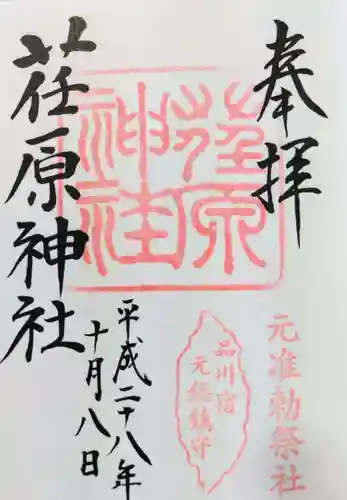 奉拝
元准勅祭社
荏原神社
品川宿
元総鎮守
荏原神社
平成二十八年
十月八日